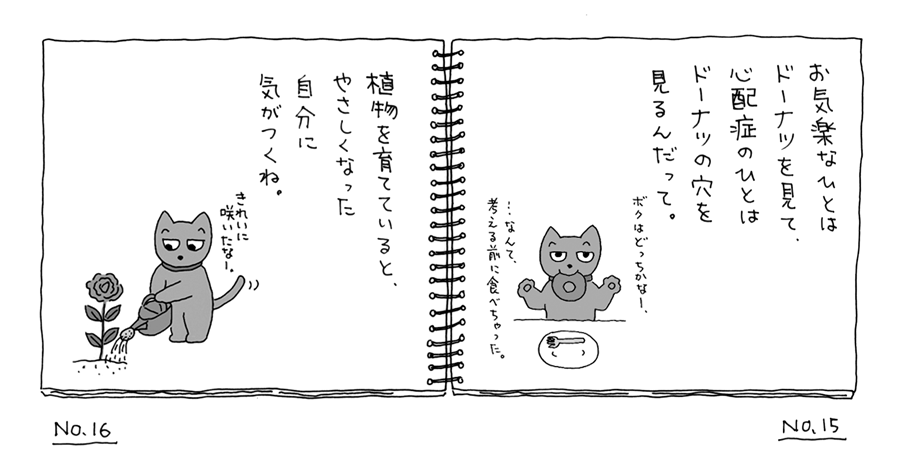 お気楽なひとは
ドーナツを見て、
心配症のひとは
ドーナツの穴を
見るんだって。
ボクはどっちかなー、
…なんて、
考える前に食べちゃった。
NO.15
植物を育てていると、
やさしくなった
自分に
気がつくね。
きれいに
咲いたなー。
NO.16